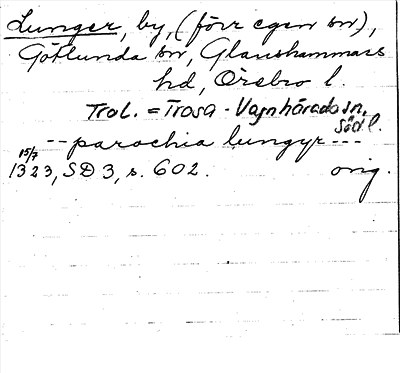 Lunger, by, (förr egen sn),
Götlunda sn, Glanshammars
hd, Örebro l.
Trol. = Trosa-Vagnhärads sn,
Söd l.
-- parochia lungyr ---
15/7
1323, SD 3, s. 602. orig.